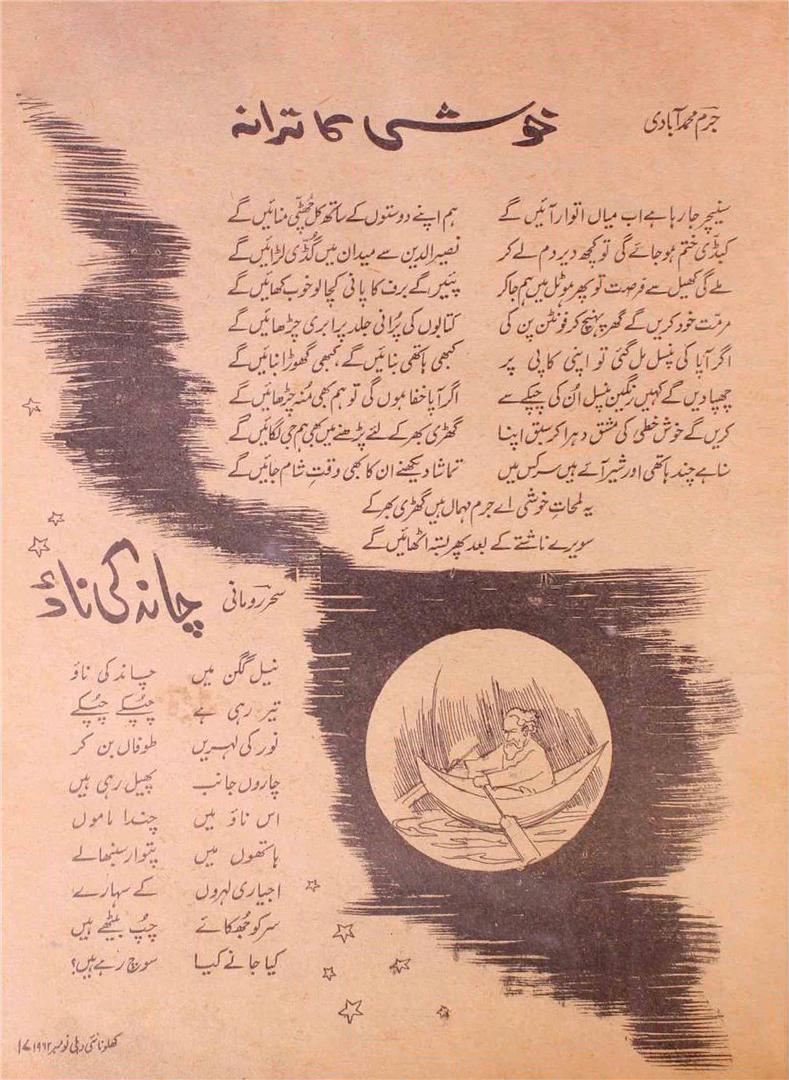 خوشی کا ترانہ
جرم محمد آبادی
سنیچر جا رہا ہے اب میاں اتوار آئیں گے ہم اپنے دوستوں کے ساتھ کل چُھٹی منائیں گے
کبڈی ختم ہو جائے گی تو کچھ دیر دم لے کر نصیر الدین سے میدان میں گُڈی لڑائیں گے
ملے گی کھیل سے فرصت تو پھر ہوٹل میں ہم جا کر پئیں گے برف کا پانی کچالو خوب کھائیں گے
مرمّت خود کریں گے گھر پہنچ کر فونٹن پن کی کتابوں کی پُرانی جلد پر ابری چڑھائیں گے
اگر آپا کی پنسل مل گئی تو اپنی کاپی پر کبھی ہاتھی بنائیں گے، کبھی گھوڑا بنائیں گے
چھپا دیں گے کہیں رنگین پنسل اُن کی چپکے سے اگر آپا خفا ہوں گی تو ہم بھی مُنہ چڑھائیں گے
کریں گے خوش خطی کی مشق دہرا کر سبق اپنا گھڑی بھر کے لئے پڑھنے میں بھی ہم جی لگائیں گے
سنا ہے چند ہاتھی اور شیر آئے ہیں سرکس میں تماشا دیکھنے ان کا بھی وقتِ شام جائیں گے
یہ لمحاتِ خوشی اے جرم مہماں ہیں گھڑی بھر کے
سویرے ناشتے کے بعد پھر بستہ اٹھائیں گے
چاند کی ناؤ
سحر رومانی
نیل گگن میں چاند کی ناؤ
تیر رہی ہے چُپکے چُپکے
نور کی لہریں طوفاں بن کر
چاروں جانب پھیل رہی ہیں
اس ناؤ میں چندا ماموں
ہاتھوں میں پتوار سنبھالے
اجیاری لہروں کے سہارے
سر کو جُھکائے چُپ بیٹھے ہیں
کیا جانے کیا سوچ رہے ہیں؟
کھلونا نئی دہلی نومبر ۱۹۶۲ء